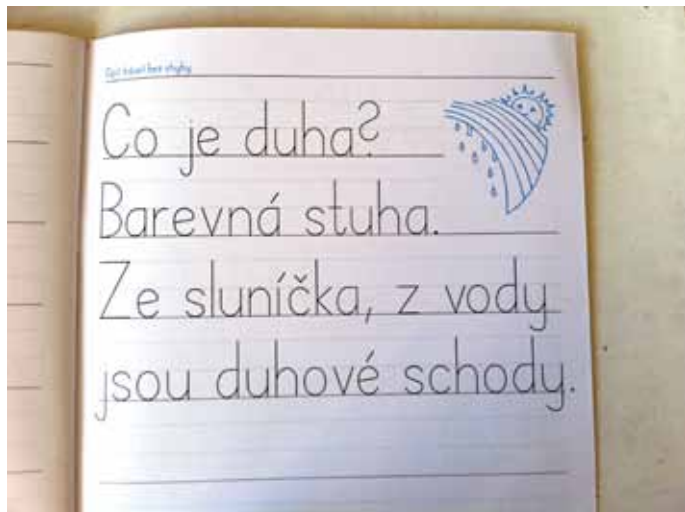 Co je duha?
Barevná stuha.
Ze sluníčka, z vody
jsou duhové schody.